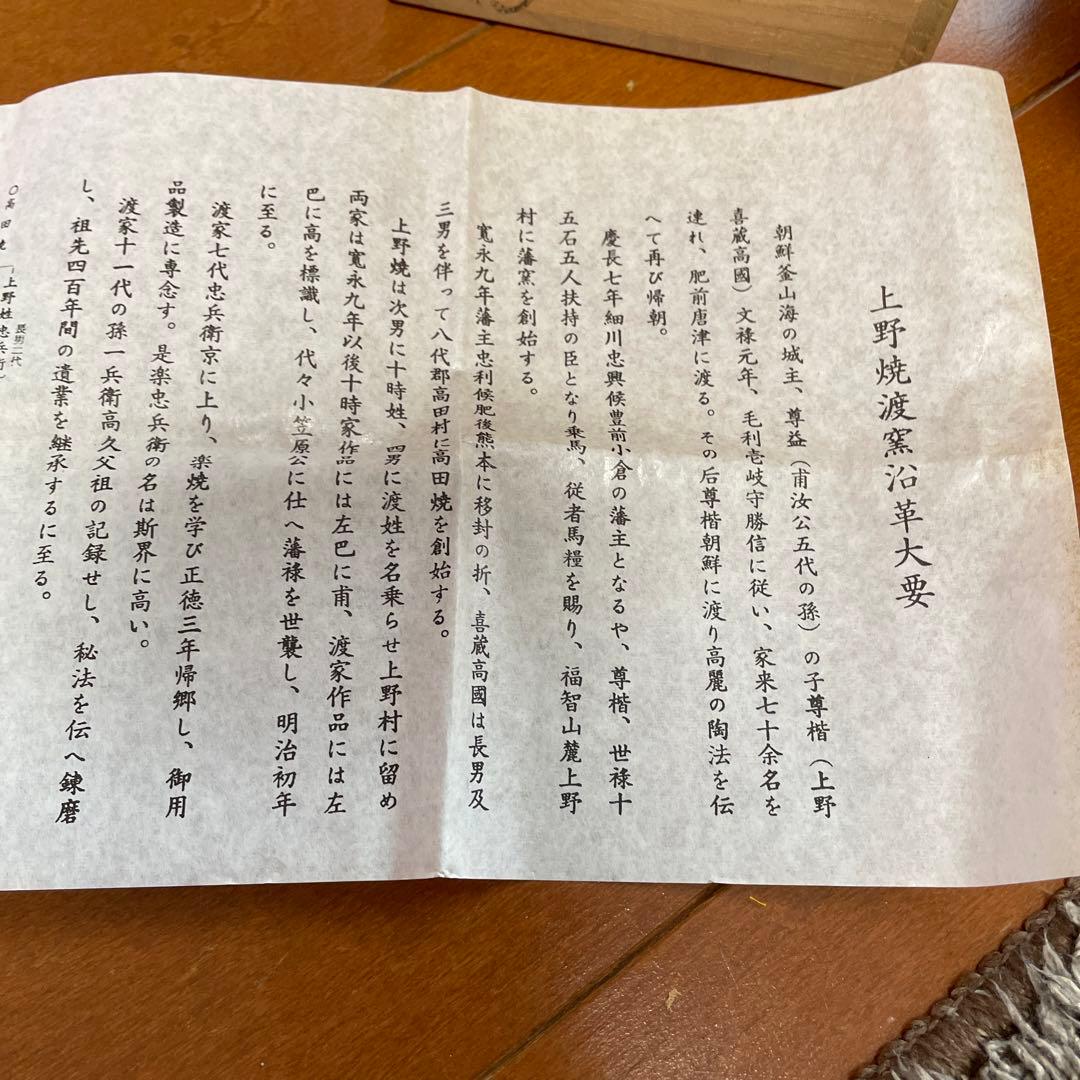 上野焼渡窯沿革大要
朝鮮釜山海の城主、尊益（甫汝公五代の孫）の子尊楷（上野
喜蔵高國）文禄元年、毛利壱岐守勝信に従い、家来七十余名を
連れ、肥前唐津に渡る。その后尊楷朝鮮に渡り高麗の陶法を伝
へて再び帰朝。
慶長七年細川忠興候豊前小倉の藩主となるや、尊楷、世禄十
五石五人扶持の臣となり乗馬、従者馬糧を賜り、福智山麓上野
村に藩窯を創始する。
寛永九年藩主忠利候肥後熊本に移封の折、喜蔵高國は長男及
三男を伴って八代郡高田村に高田焼を創始する。
上野焼は次男に十時姓、四男に渡姓を名乗らせ上野村に留め
両家は寛永九年以後十時家作品には左巴に甫、渡家作品には左
巴に高を標識し、代々小笠原公に仕へ藩禄を世襲し、明治初年
に至る。
渡家七代忠兵衛京に上り、楽焼を学び正徳三年帰郷し、御用
品製造に専念す。是楽忠兵衛の名は斯界に高い。
渡家十一代の孫一兵衛高久父祖の記録せし、秘法を伝へ錬磨
し、祖先四百年間の遺業を継承するに至る。
長男二代
○高田焼「上野姓忠兵衛）